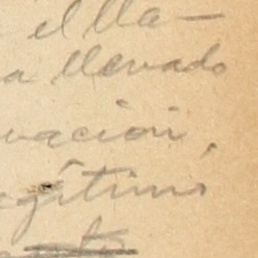 el lla-
a llevado
vación,
egítimo